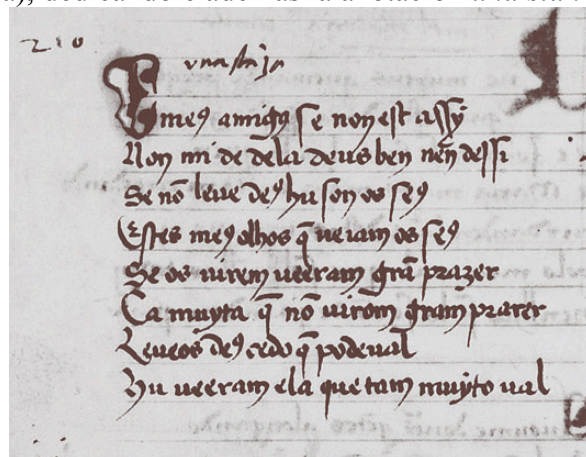 210
una staja
E meus amigus se non est assy
Non mi de dela deus ben nen dessi
Se nō leve de9 hu son os se9
Estes me9 olhos q̄ veiam os se9
Se os virem veeram grā prazer
Ca muyta q̄ nō virom gram prazer
Leveos de9 cedo q̄ pode val
Hu veeram ela que tam muyto val